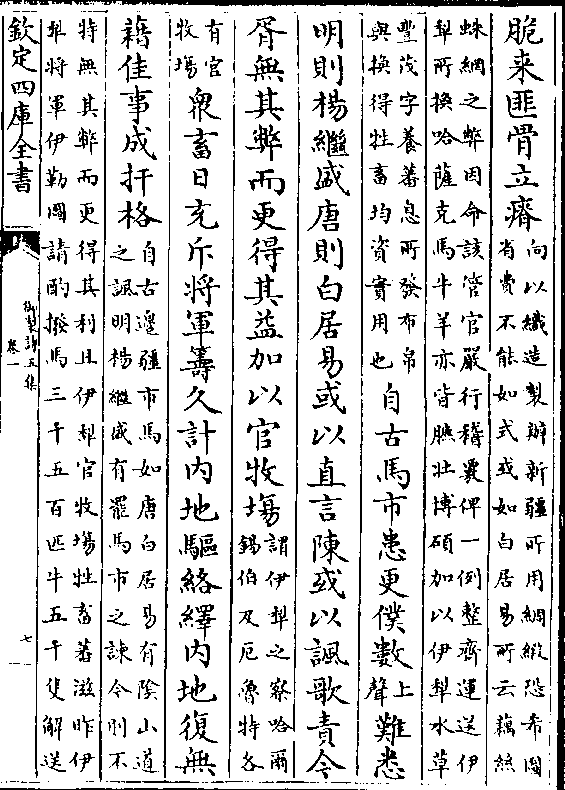 脆来匪骨立瘠
向以織造製辦新疆所用綢緞恐希圖
省費不能如式或如白居易所云藕絲
蛛網之弊因命該管官嚴行稽覈俾一例整齊運送伊
犁所換哈薩克馬牛羊亦皆腆壯博碩加以伊犁水草
豐茂字養蕃息所發布帛
與換得牲畜均資實用也
自古馬市患更僕數上聲難悉
明則楊繼盛唐則白居易或以直言陳或以諷歌責今
胥無其弊而更得其益加以官牧塲
謂伊犁之察哈爾
錫伯及厄魯特各
有官
牧塲
衆畜日充斥将軍籌久計内地驅絡繹内地復無
藉佳事成扞格
自古邊疆市馬如唐白居易有隂山道
之諷明楊繼盛有罷馬市之諫今則不
特無其弊而更得其利且伊犁官牧塲牲畜蕃滋昨伊
犁将軍伊勒圖請酌撥馬三千五百匹牛五千隻解送
欽定四庫全書
御製詩五集
卷一
七